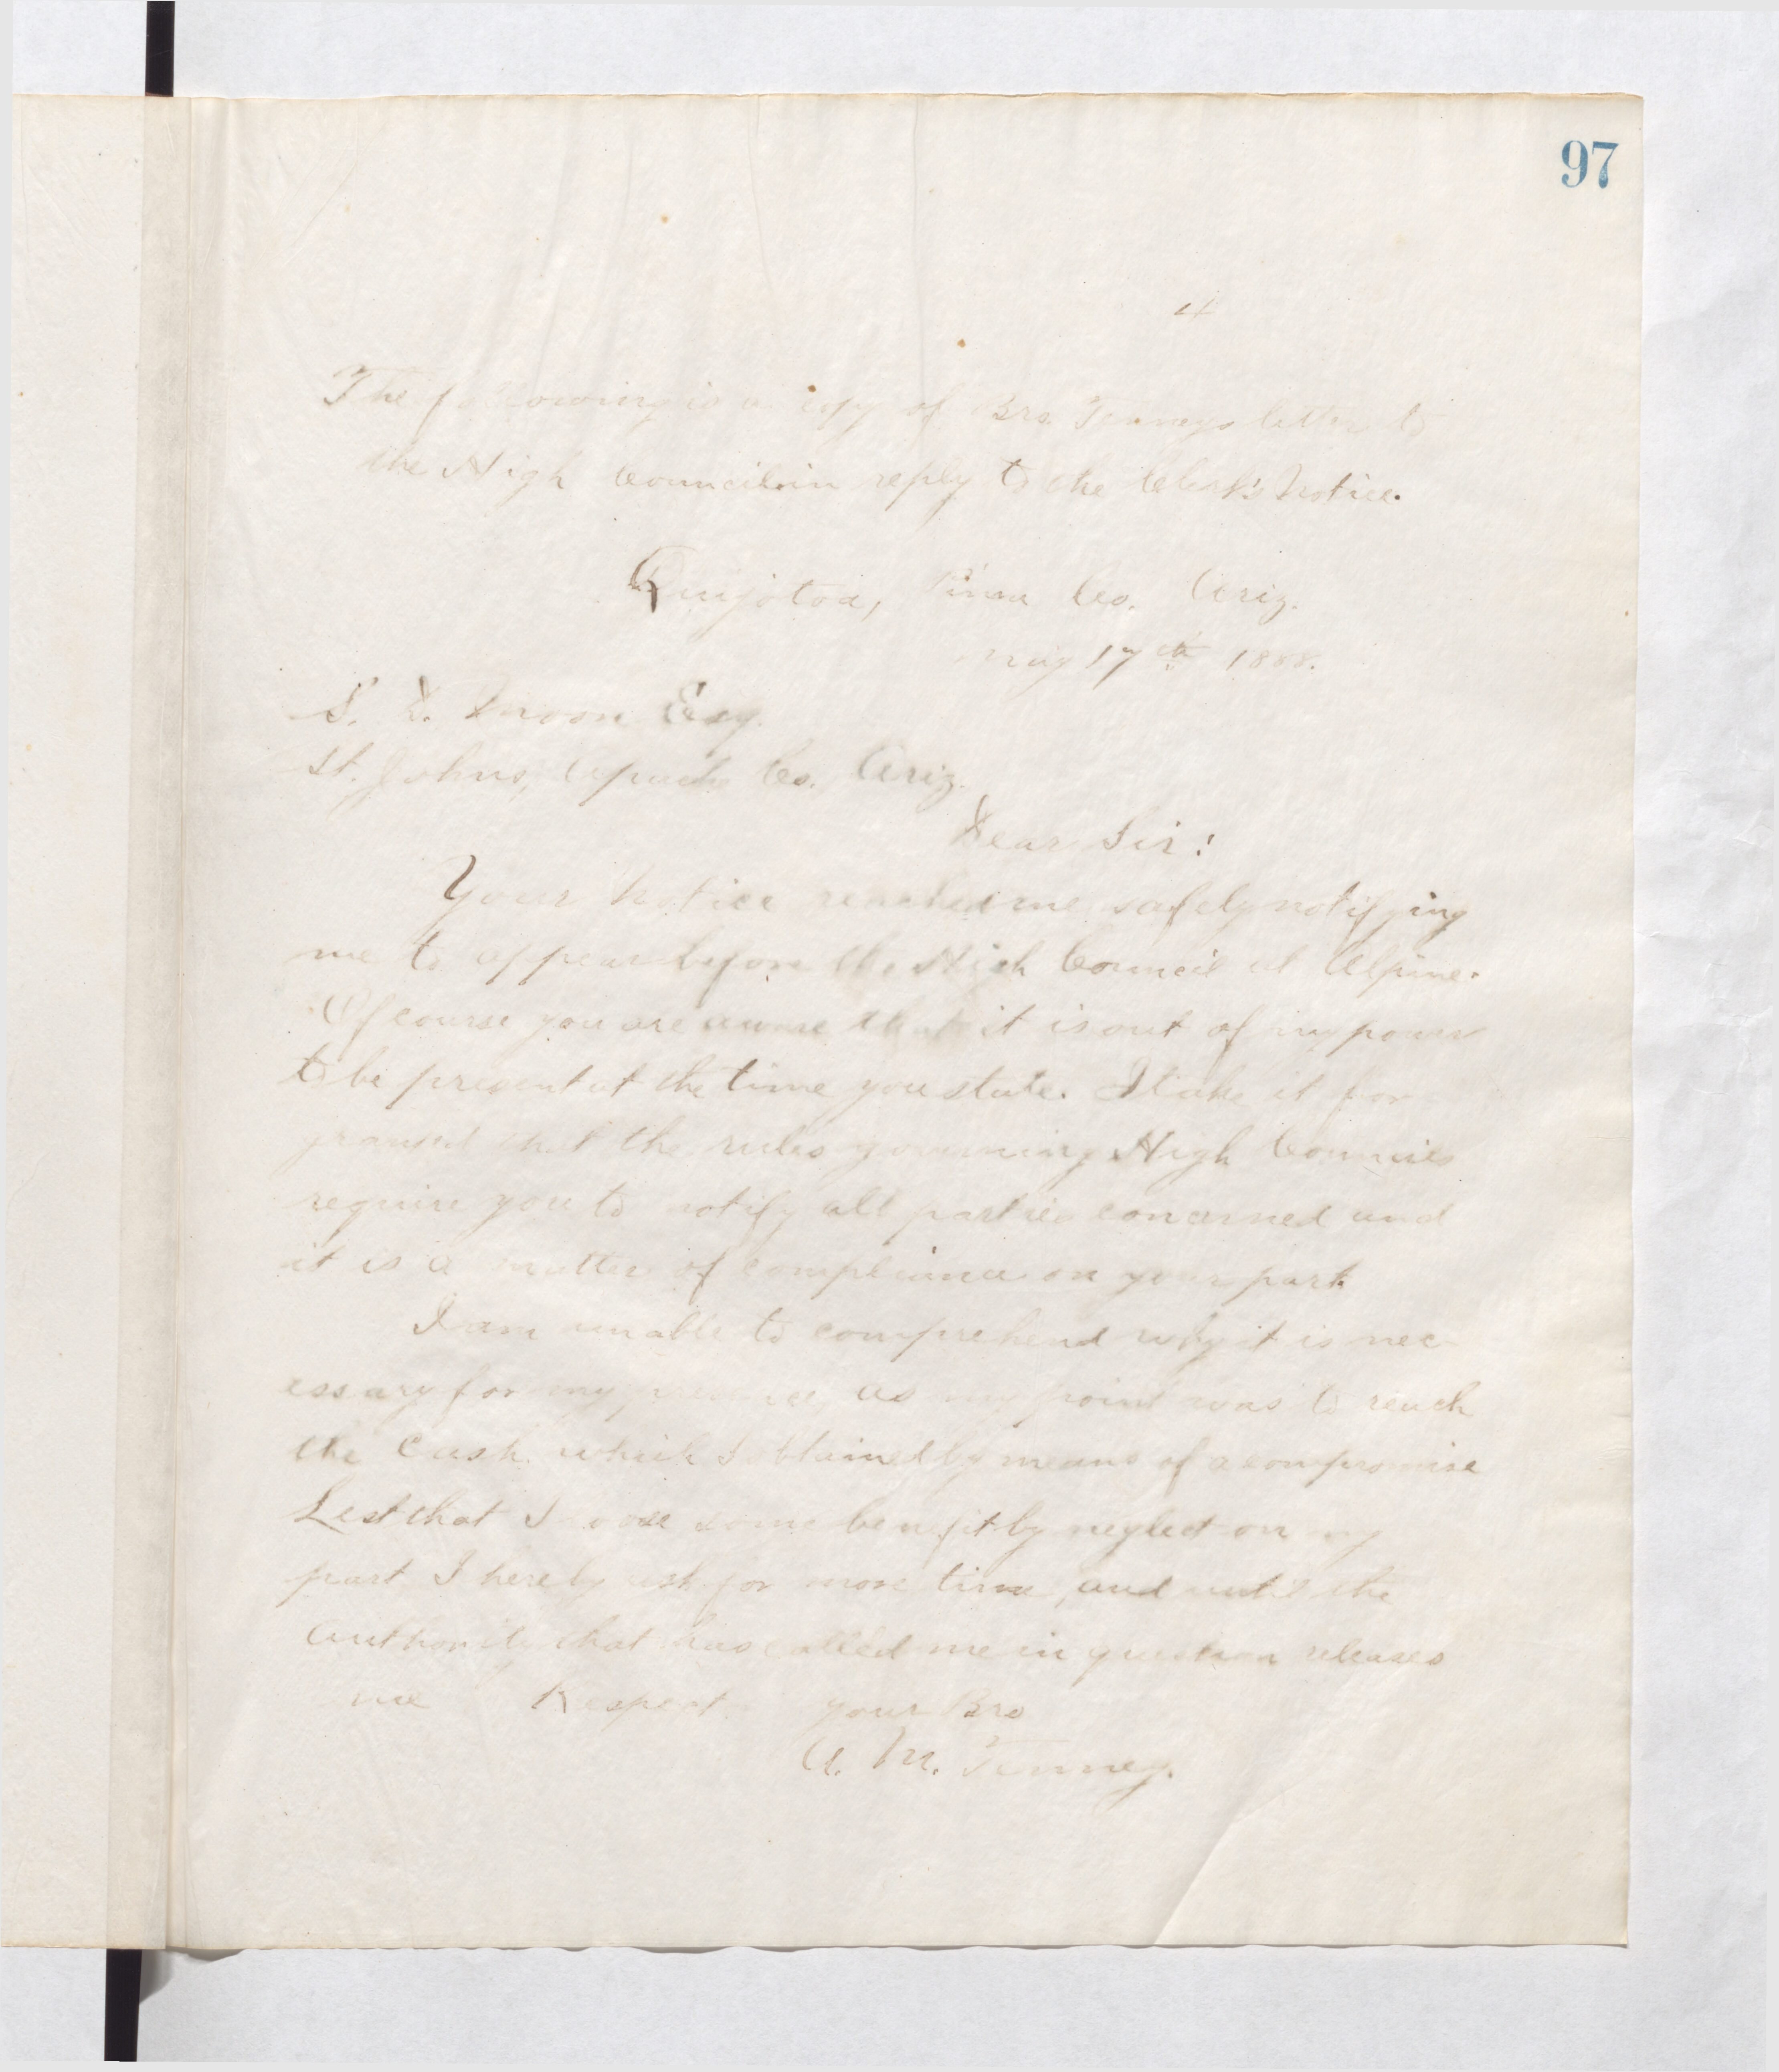 97
4
The following is a copy of Bro. Tenneys letter to
the High Council in reply to the Clerk's Notice.
Quijotoa, Pima Co. Ariz.
May 17th 1888.
S. D. Moon Esq.
St. Johns, Apache Co. Ariz.
Dear Sir!
Your Notice reached me safely notifying
me to appear before the High Council at Alpine.
Of course you are aware that it is out of my power
to be present at the time you state. I take it for
granted that the rules governing High Councils
require you to notify all parties concerned and
it is a matter of compliance on your part.
I am unable to comprehend why it is nec-
essary for my presence as my point was to reach
the Cash which I obtained by means of a compromise
Lest that I loose some benefit by neglect on my
part I hereby ask for more time, and until the
authority that has called me in question releases
me Respect. your Bro
A. M. Tenney.